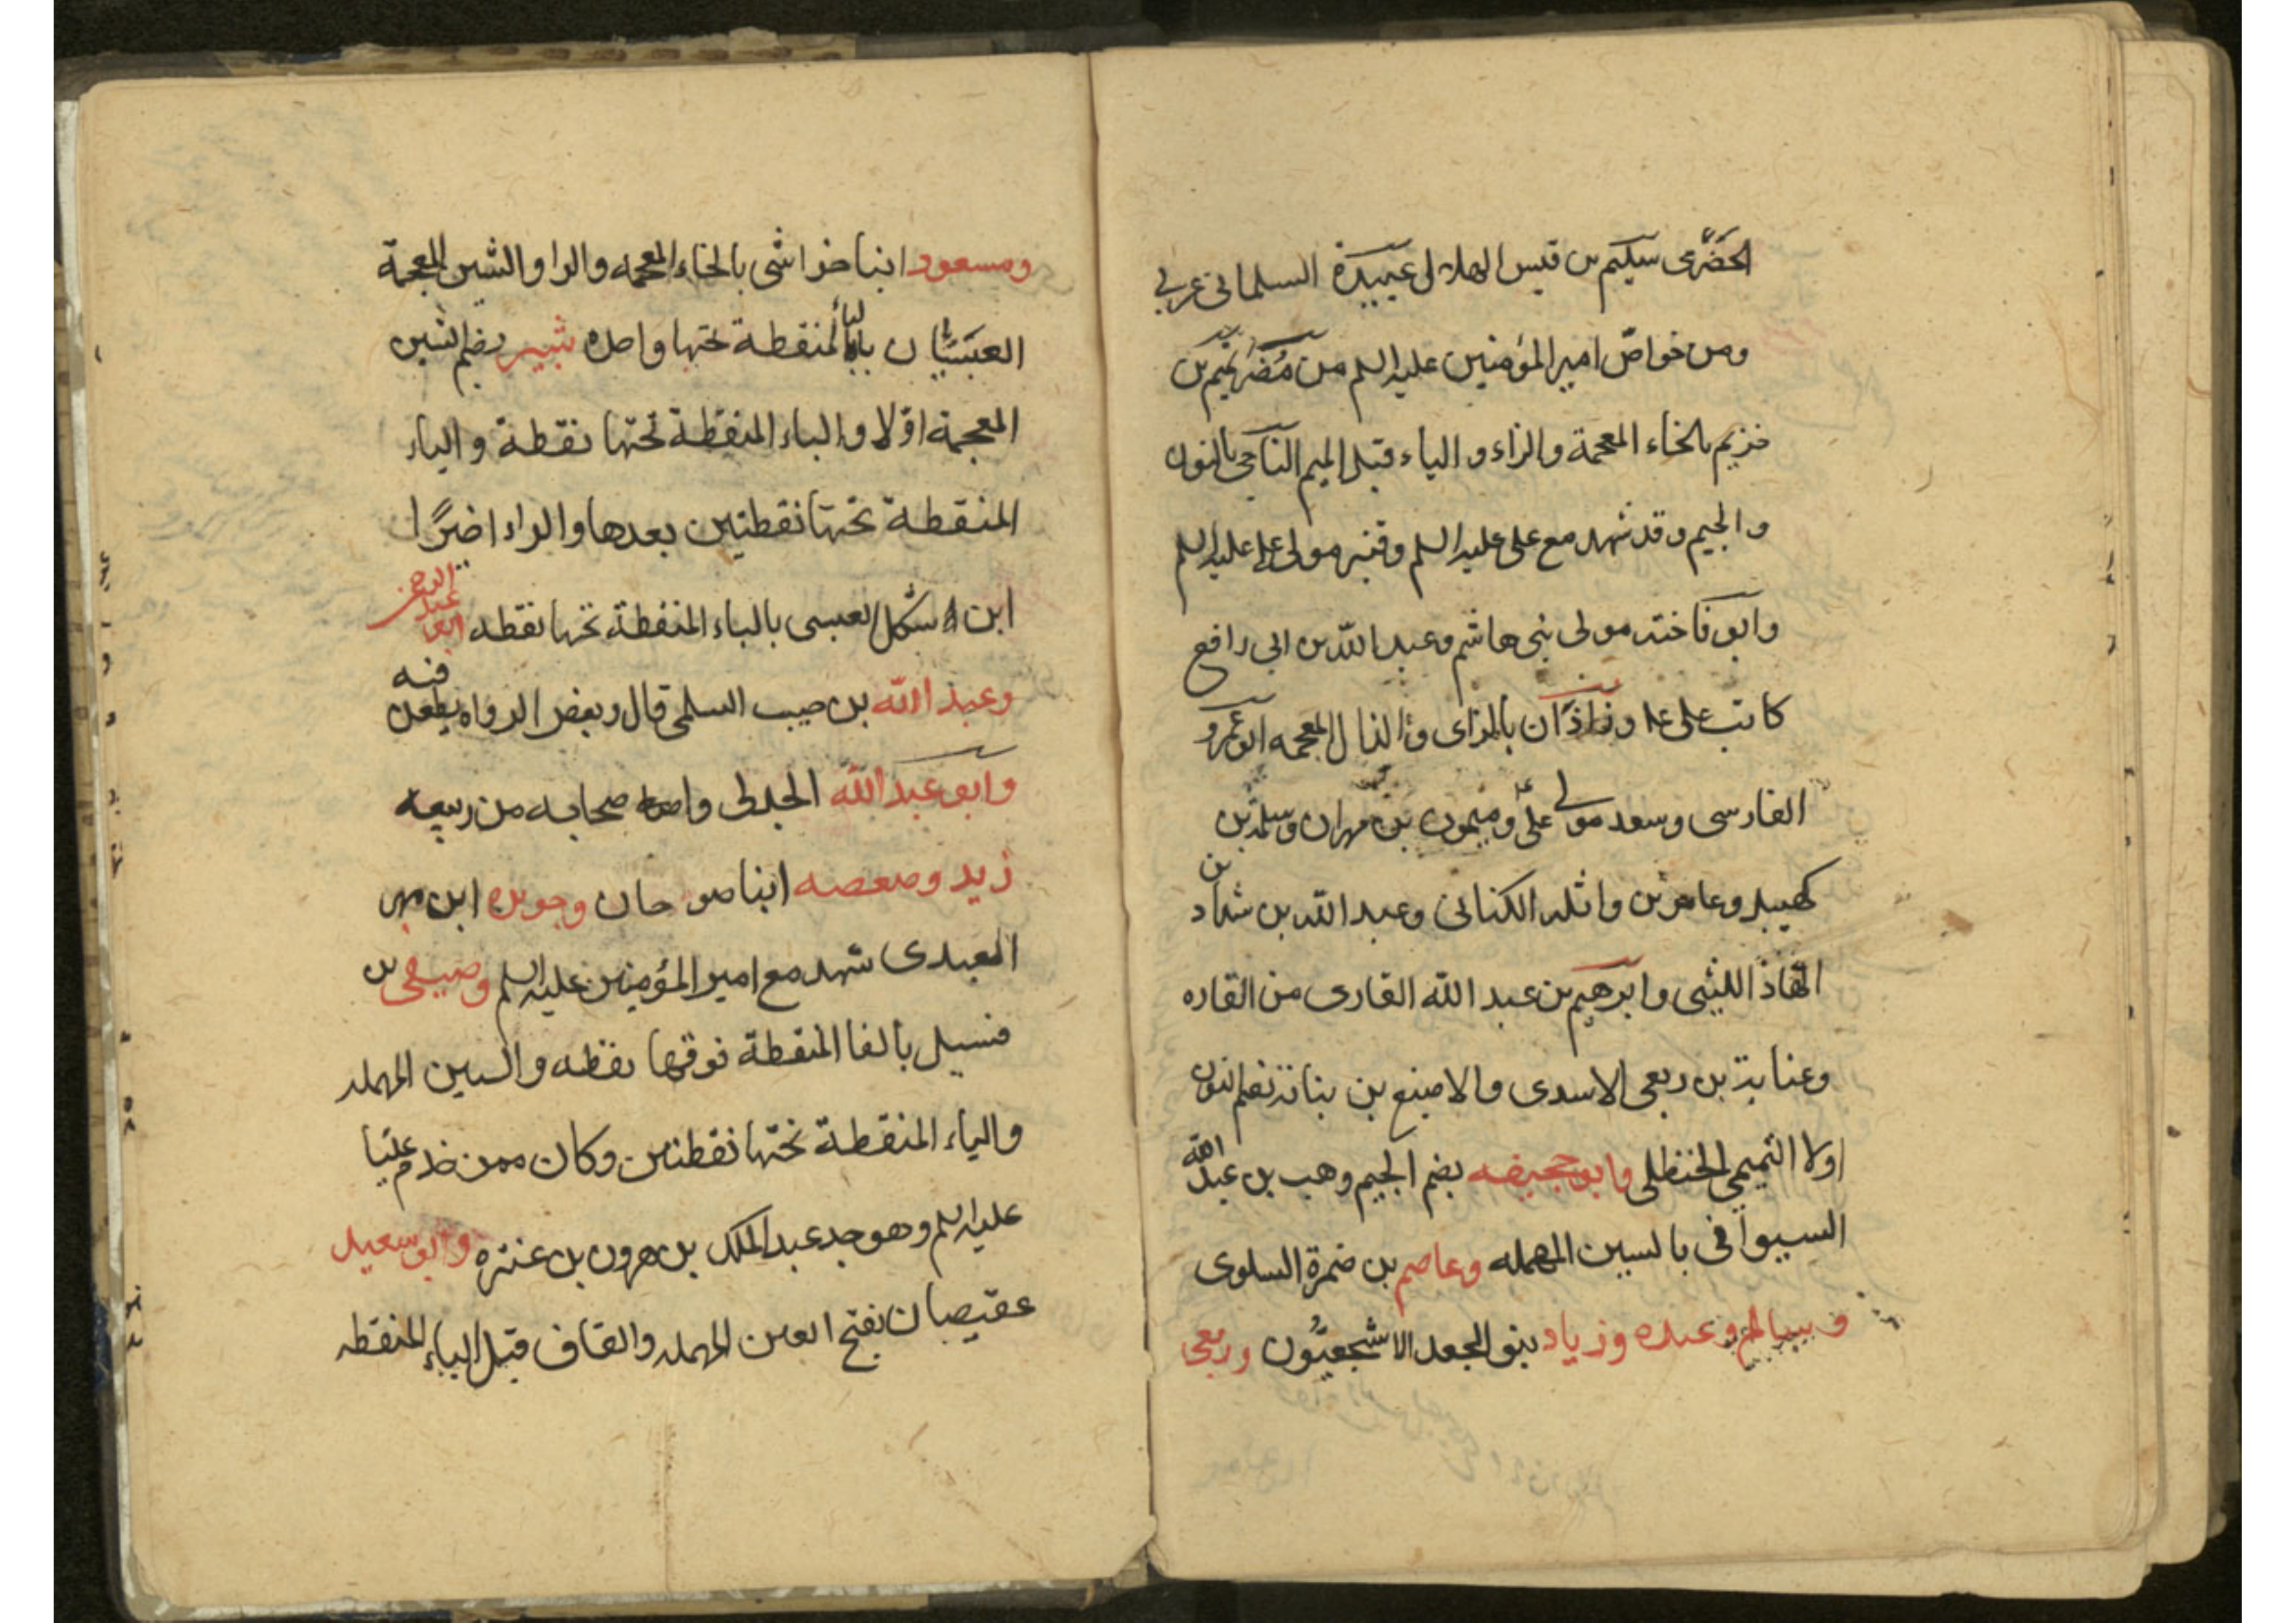 الحَضْرَمى سليم بن قيس الهلالى عبيدة السلمانى عربى
ومن خواصّ امير المؤمنين عليه السلم من مُضَر تميم بن
خزيم بالخاء المعجمة والزاء والياء قبل الميم الناجى بالنون
والجيم وقد شهد مع على عليه السلم وقنبر مولى على عليه السلم
وابو فاخته مولى بنى هاشم وعبد الله بن ابى رافع
كاتب على ع وزاذان بالزاى والذال المعجمه ابو عمرو
الفارسى وسعد مولى علىّ وميمون بن مهران وسلمة بن
كهيل وعامر بن واثلة الكنانى وعبد الله بن شداد بن
الهاذ الليثى وابرهيم بن عبد الله القارى من القاره
وعناية بن ربعى الاسدى والاصبغ بن بناتة بضم النون
اولا التميمى الحنظلى وابو جحيفه بضم الجيم وهب بن عبد الله
السيوافى بالسين المهمله وعاصم بن ضمرة السلوى
وسالم وعبده وزياد بنو الجعد الاشجعيّون وربعى
ومسعود ابنا خراشى بالخاء المعجمه والرا والشين المعجمة
العبسيان بالباء المنقطة تحتها واحده شبير بضم الشين
المعجمة اوّلا والباء المنقطة تحتها نقطة والياء
المنقطة تحتها نقطتين بعدها والراء اخيرًا
ابن شكل العبسى بالباء المنقطة تحتها نقطه ابو عبد الرحمن
وعبد الله بن حبيب السلمى قال وبعض الرواه يطعن فيه
وابو عبد الله الجدلى واصحابه من ربيعه
زيد وصعصه ابنا صوحان وجويره ابن مهر
العبدى شهد مع امير المؤمنين عليه السلم وصيفى بن
فسيل بالفا المنقطة فوقها نقطه والسين المهمله
والياء المنقطة تحتها نقطتين وكان ممن خدم عليا
عليه السلم وهو جد عبد الملك بن هرون بن عنتره وابو سعيد
عقيصان بفتح العين المهمله والقاف قبل الياء المنقطه